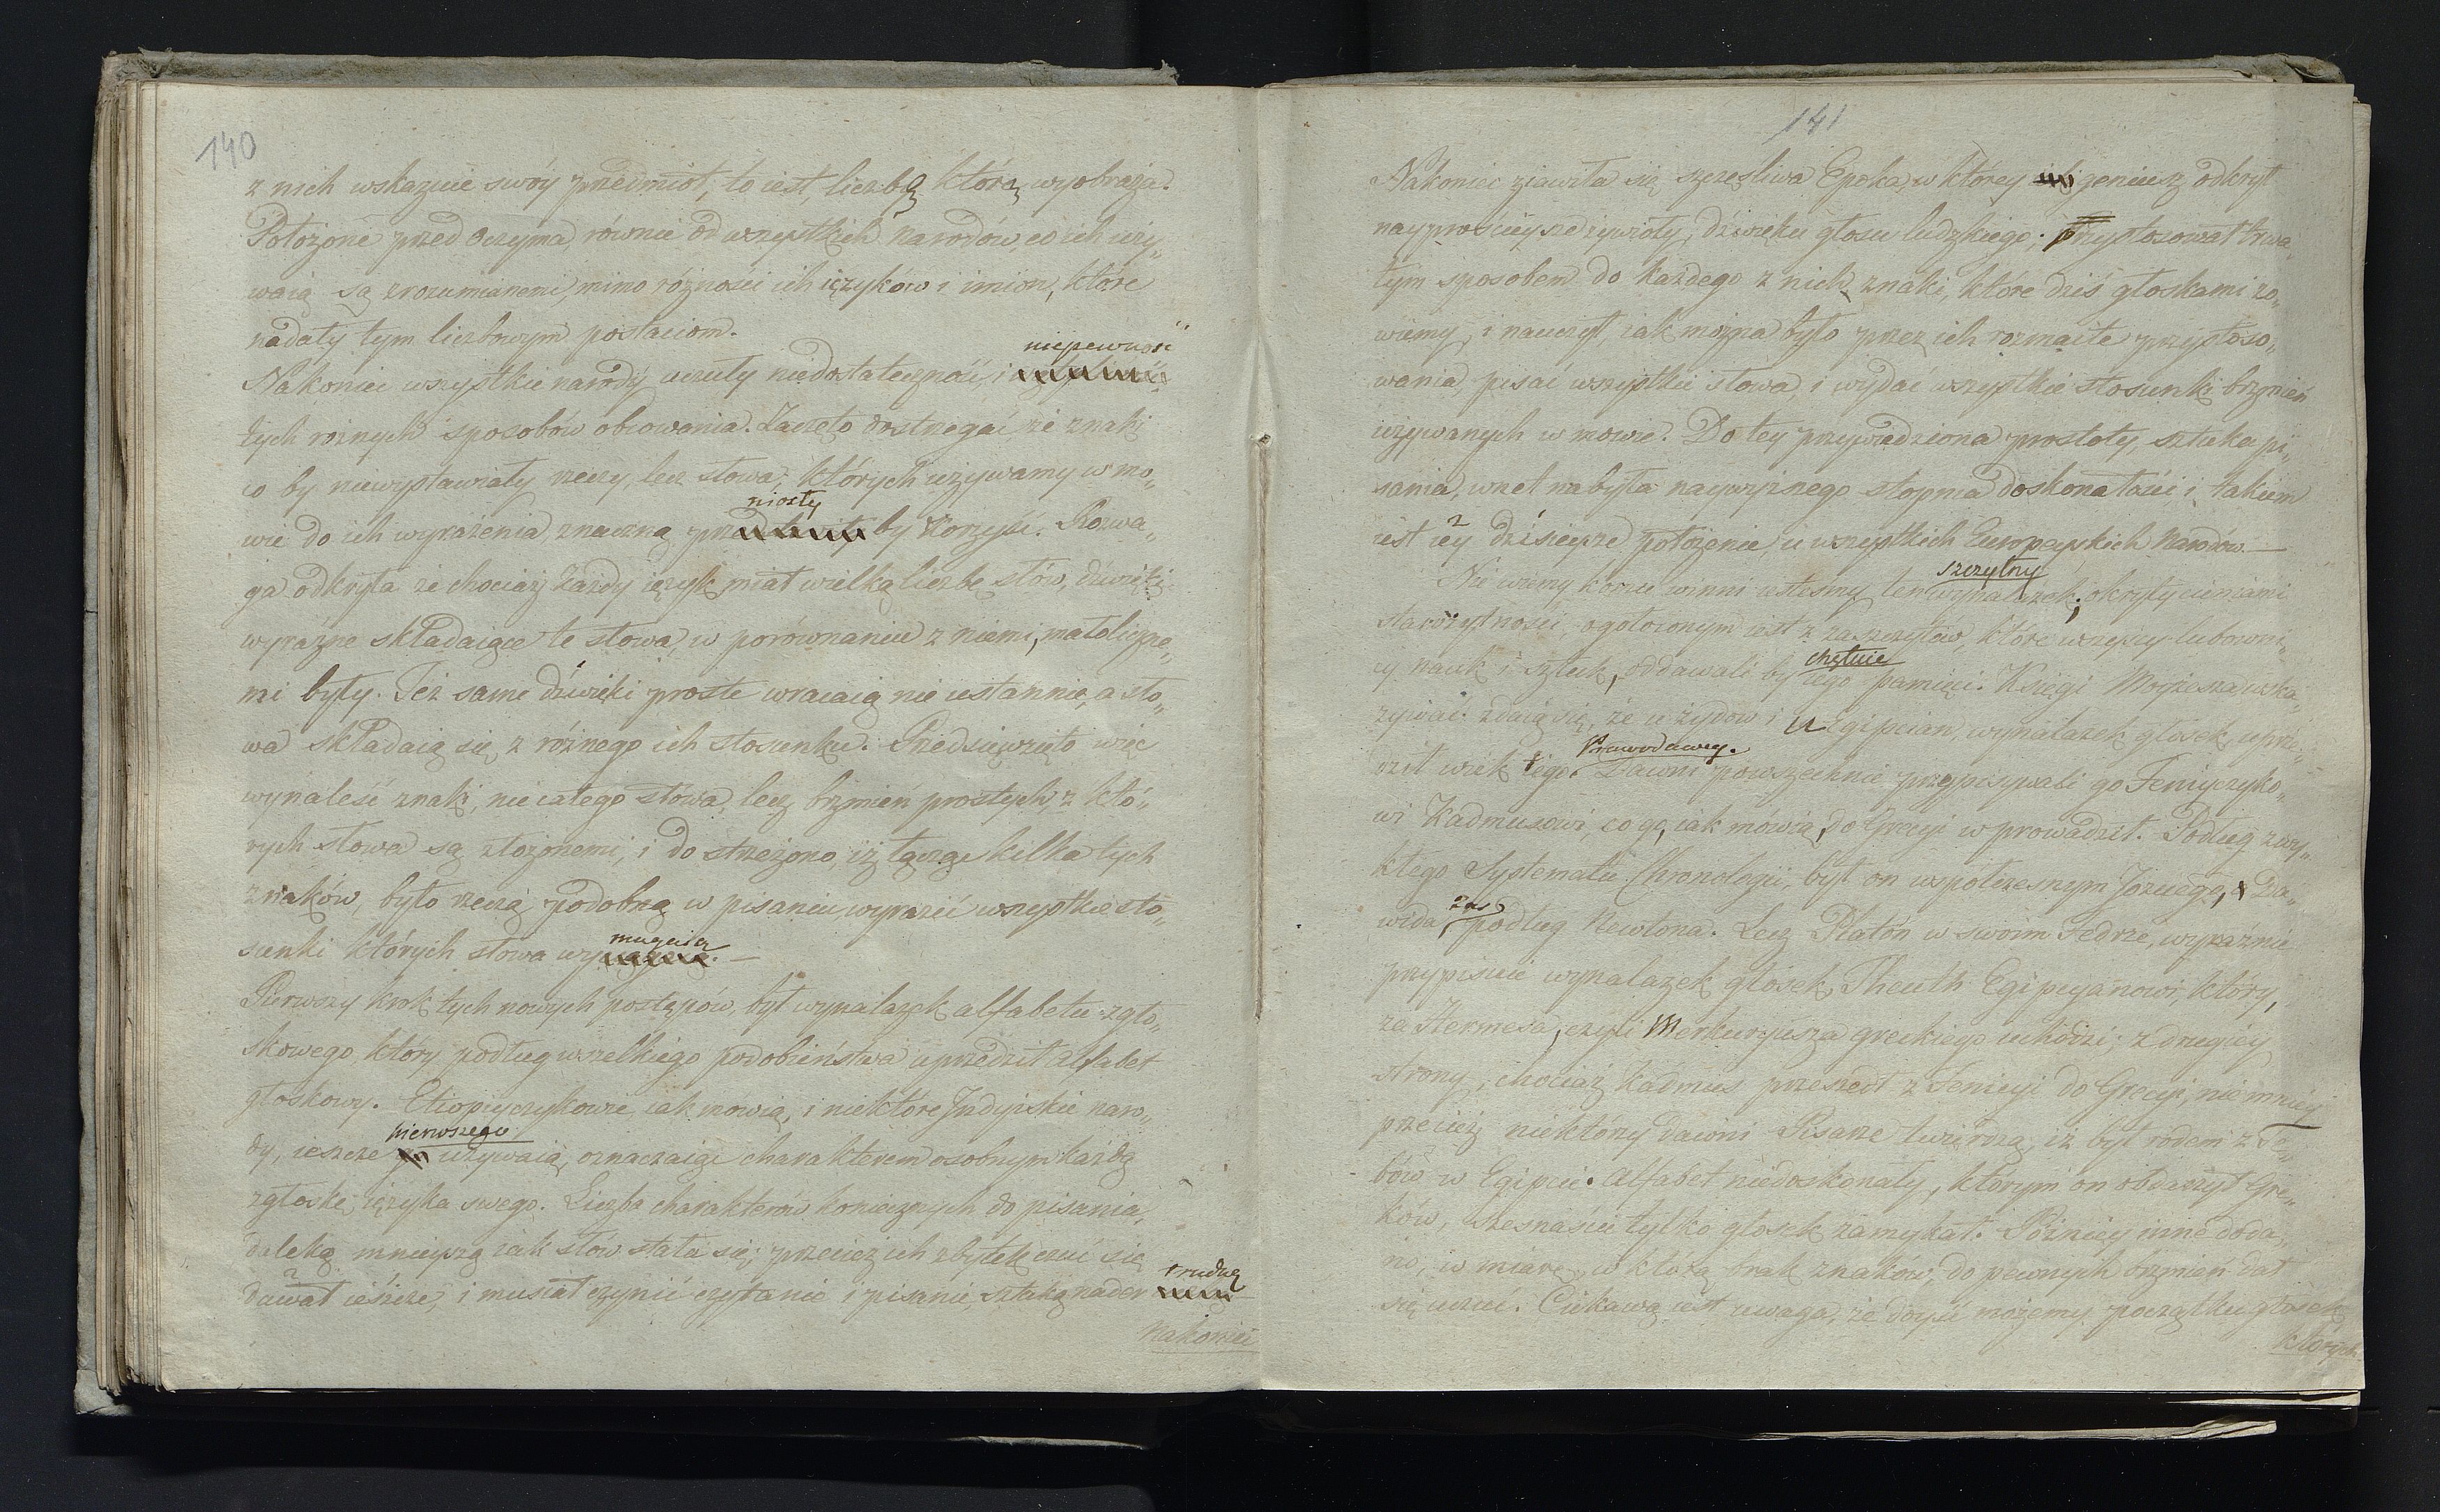 140
z nich wskazuie swóy przedmiot, to iest, liczbę którą wyobraża.
Położone przed oczyma, równie od wszystkich narodów, co ich uży„
waią są zrozumianemi, mimo różności ich ięzyków i imion, które
nadały tym liczbowym postaciom.
niepewność
Nakoniec wszystkie narody uczuły niedostateczność, i
tych rożnych sposobów obcowania. Zaczęto dostrzegać, że znaki
co by niewystawiały rzeczy, lecz słowa, których używamy w mo„
niosły
wie do ich wyrażenia, znaczną przy by korzyść. Rozwa„
ga odkryła że chociaż każdy ięzyk miał wielką liczbę słów, dźwięki
wyrazne składaiące te słowa, w porównaniu z niemi, małoliczne„
mi były. Też same dźwięki proste wracaią nie ustannie, a sło„
wa składaią się z różnego ich stosunku. Przedsięwzięto więc
wynaleść znaki, nie całego słowa, lecz brzmień prostych, z któ„
rych słowa są złożonemi, i do strzeżono, iż łącząc kilka tych
znaków, było rzeczą podobną w pisaniu wyrazić wszystkie sto„
sunki których słowa wymagaią. —
Pierwszy krok tych nowych postępów, był wynalazek alfabetu zgło„
skowego, który podług wszelkiego podobieństwa uprzedził alfabet
głoskowy. Etiopiyczykowie, iak mówią, i niektóre Indyiskie naro„
pierwszego
dy, ieszcze używaią, oznaczaiąc charakterem osobnym każdą
zgłoskę ięzyka swego. Liczba charakterów koniecznych do pisania,
daleką mnieyszą iak słów stała się; przecież ich zbytek czuć się
trudną
dawał ieszcze, i musiał czynić czytanie i pisanie, sztuką nader
Nakoniec
141
Nakoniec ziawiła się szczęśliwa Epoka, w którey geniusz odkrył
nayprościeysze żywioły, dźwięku głosu ludzkiego; przystosował trwa„
łym sposobem do każdego z nich znaki, które dziś głoskami zo„
wiemy, i nauczył, iak można było przez ich rozmaite przystoso„
wania, pisać wszystkie słowa, i wydać wszystkie stosunki brzmień
używanych w mowie. Do tey przywiedziona prostoty, sztuka pi„
sania, wnet nabyła naywyższego stopnia doskonałości i takiem
iest iey dzisieysze położenie, u wszystkich Europeyskich Narodów. —
szczytny
Nie wiemy komu winni iesteśmy ten wynalazek; okryty cieniami
starożytności, ogołoconym iest z zaszczytów, które wszyscy lubowni„
chętnie
cy nauk i sztuk, oddawali by iego pamięci. Księgi Moyżesza wska„
zywać zdaią się, że u żydów i u Egipcian, wynalazek głosek uprze„
Prawodawcy.
dził wiek tego. Dawni powszechnie przypisywali go Fenicyczyko„
wi Kadmusowi, co go, iak mówią, do Grecyi w prowadził. Podług zwy„
kłego Systematu Chronologii, był on wspołczesnym Jozuego, a Da„
zaś
wida, podług Newtona. Lecz Platon w swoim Fedrze, wyraźnie
przypisuie wynalazek głosek, Theuth Egipcyanowi, który,
za Hermesa, czyli Merkuryusza greckiego uchodzi; z drugiey
strony, chociaż Kadmus przeszedł z Fenicyi do Grecyi, niemniey
przecież niektórzy dawni Pisarze twierdzą, iż był rodem z Te„
bów w Egipcie. Alfabet niedoskonały, którym on obdarzył Gre„
ków, szesnaście tylko głosek zamykał. Pózniey inne doda„
no, w miarę, w którą brak znaków, do pewnych brzmień dał
się uczuć. Ciekawą iest uwaga, że doyść możemy początku głosek
których